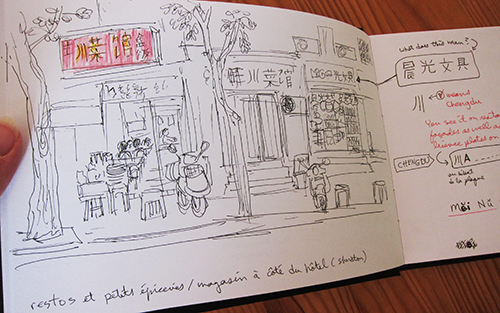 川菜馆
川菜馆
restos et petits épiceries / magasin à côté du hôtel
what does this mean?
晨光文具
川 ← means
Chengdu
You see it on
façades as well a
license plates on
CHENGDU 川A
au début
à la plaque